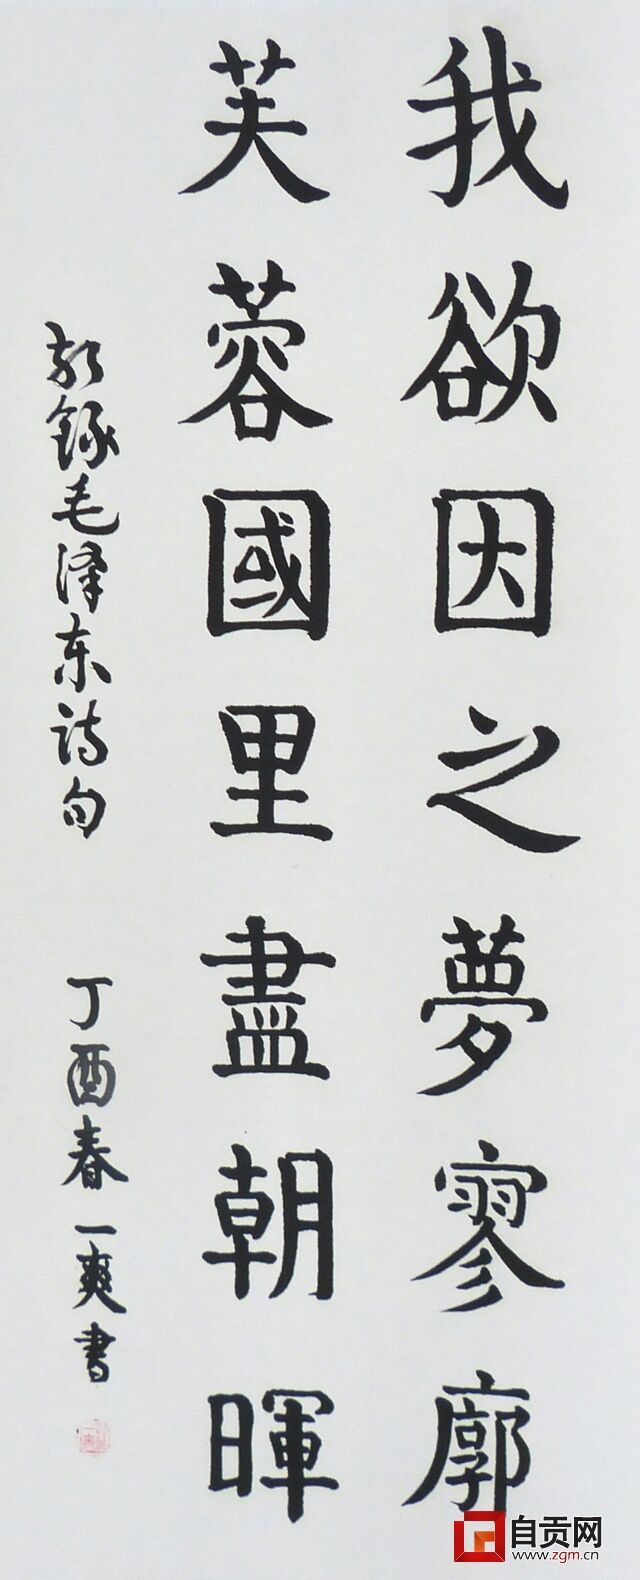 我欲因之夢寥廓
芙蓉國里盡朝暉
敬録毛泽东诗句
丁酉春一爽書
自贡网
www.zgm.cn